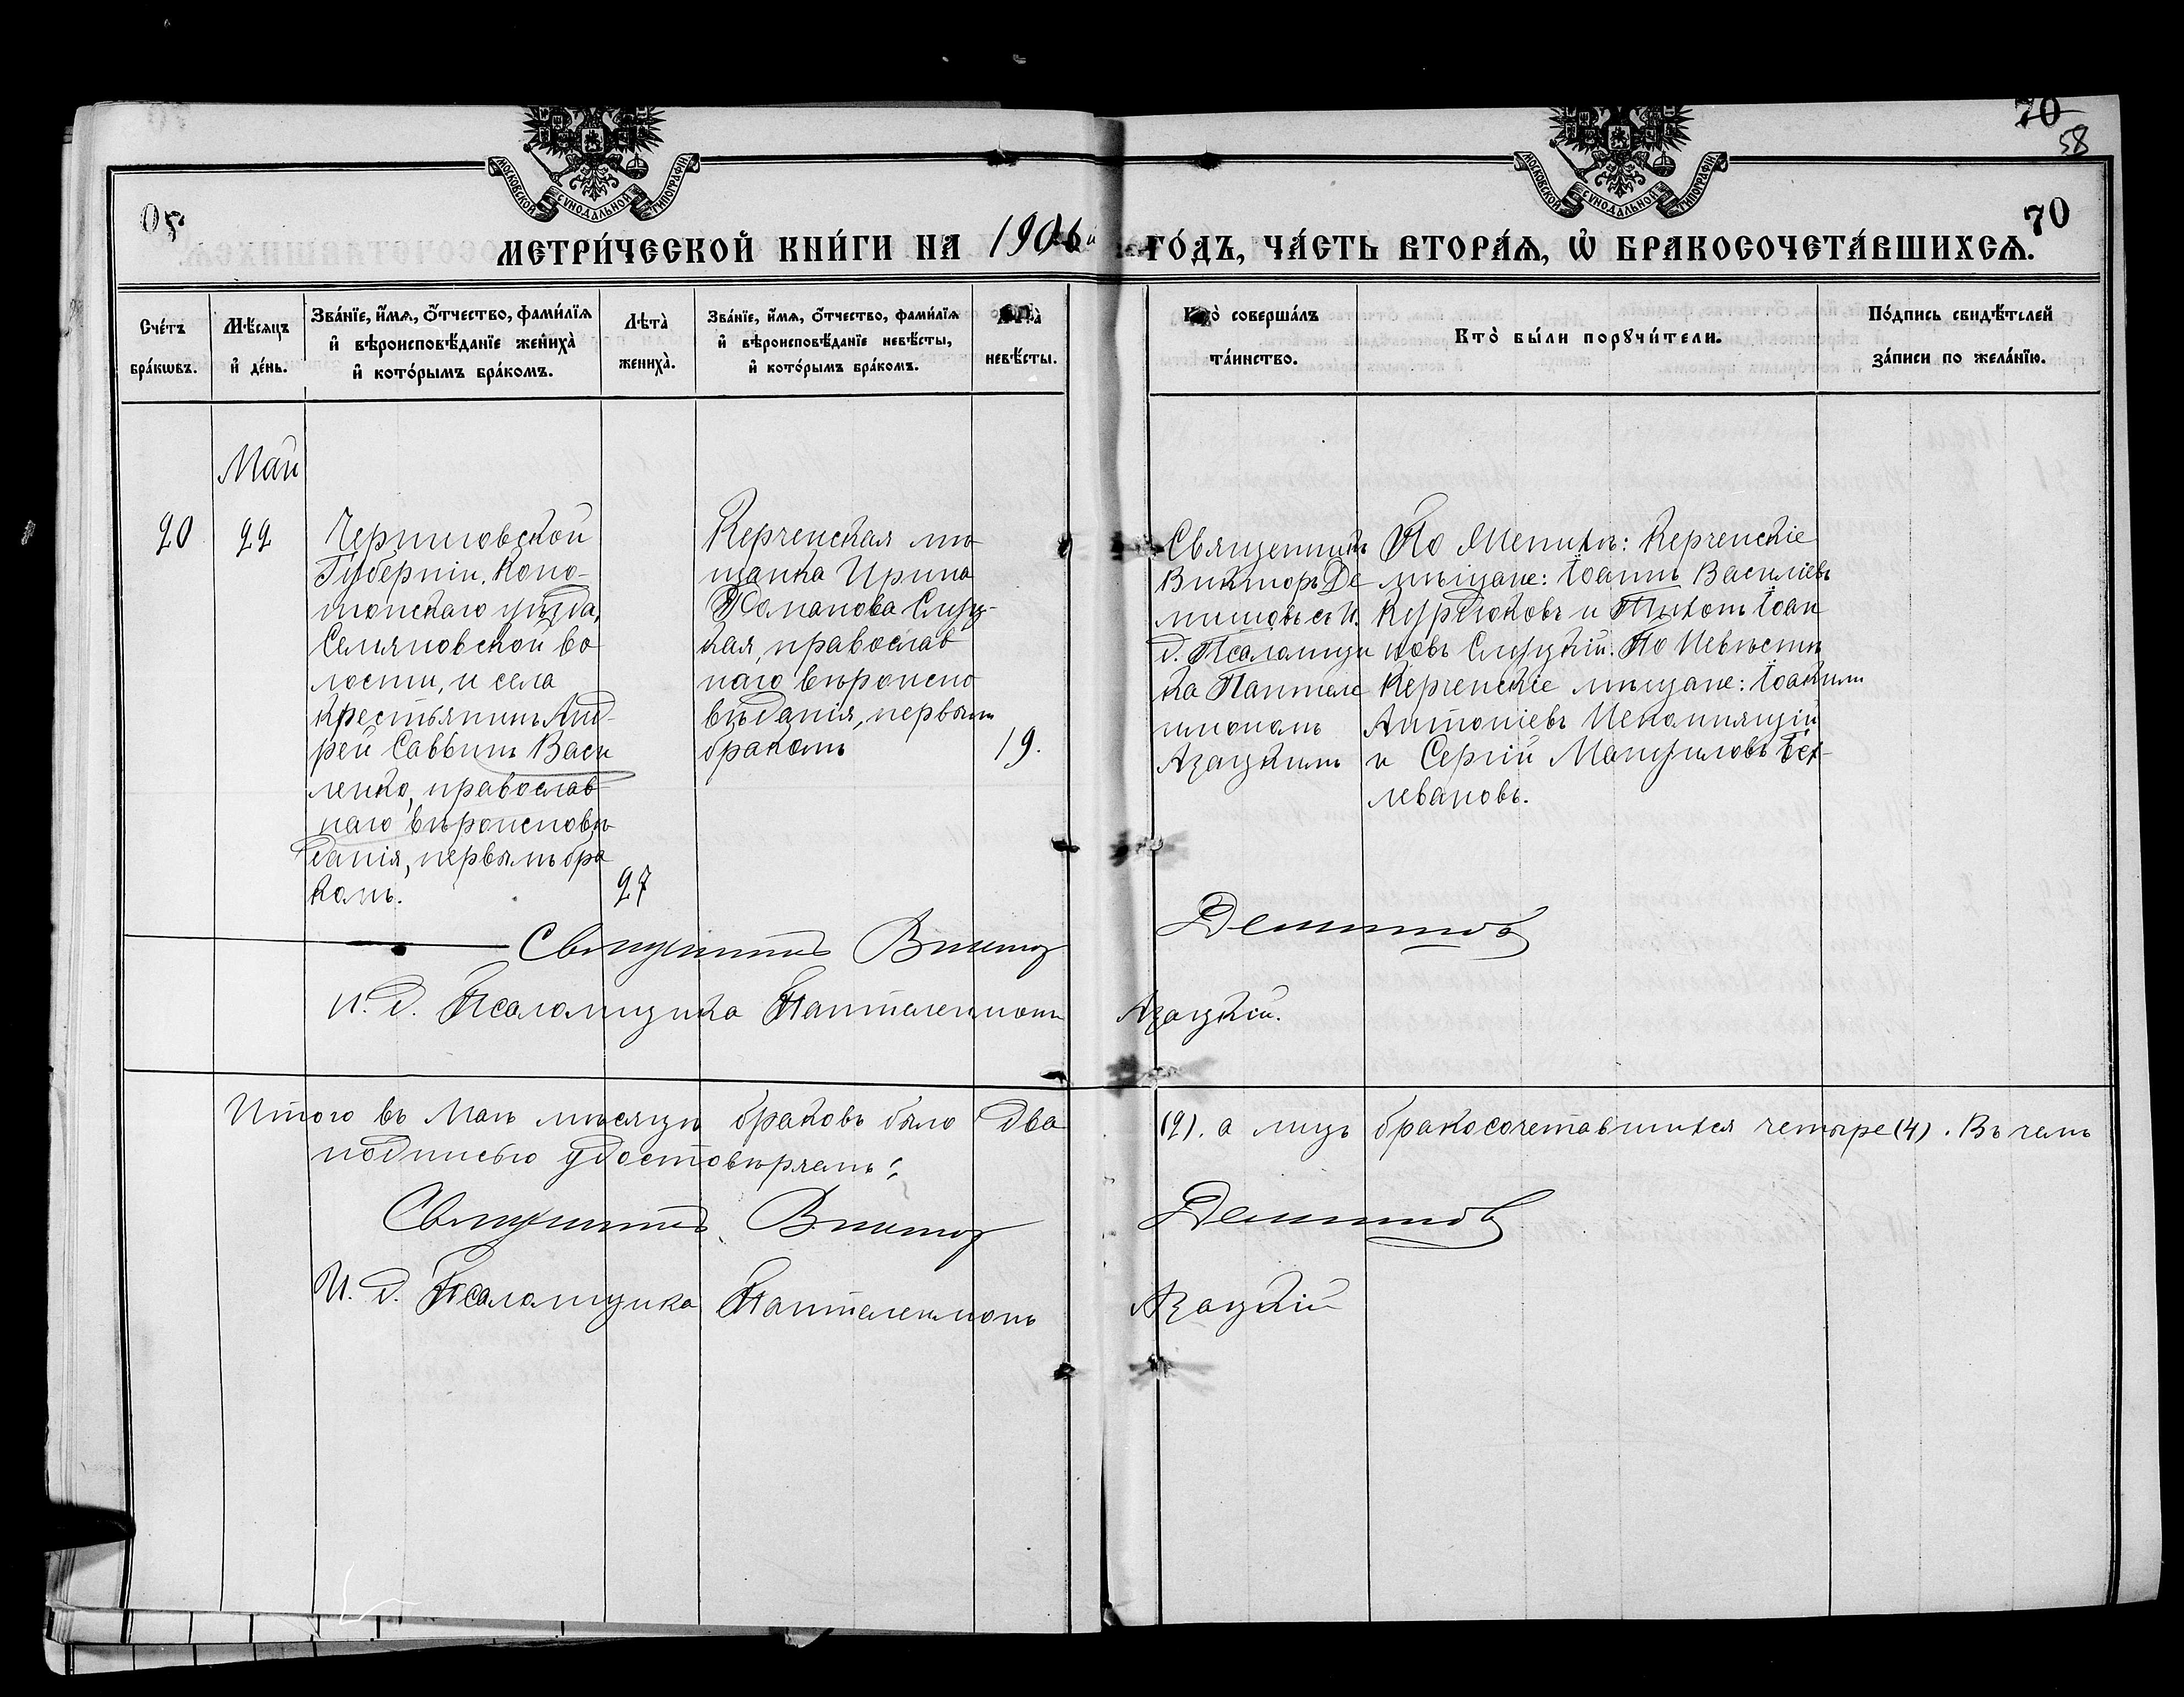 70
58
70
МОСКОВСКОЙ СѴНОДАЛЬНОЙ ТИПОГРАФІИ
МОСКОВСКОЙ СѴНОДАЛЬНОЙ ТИПОГРАФІИ
МЕТРИ́ЧЕСКОЙ КНИ́ГИ НА 1906 ГО́ДЪ, ЧА́СТЬ ВТОРА́Ѧ, Ѡ҆ БРАКОСОЧЕТА́ВШИХСѦ.
Сче́тъ
бра́кѡвъ.
Мѣ́сѧцъ
и҆ де́нь.
Зва́нїе, и҆́мѧ, ѻ҆́тчество, фами́лїѧ
и҆ вѣроисповѣ́данїе жениха̀
и҆ кото́рымъ бра́комъ.
Лѣта̀
жениха̀.
Зва́нїе, и҆́мѧ, ѻ҆́тчество, фами́лїѧ
и҆ вѣроисповѣ́данїе невѣ́сты,
и҆ кото́рымъ бра́комъ.
Лѣта̀
невѣ́сты.
Кто̀ соверша́лъ
та́инство.
Кто̀ бы́ли порꙋчи́тели.
По́дпись свидѣ́телей
за́писи по жела́нїю.
Май
20
22
Черниговской
Губерніи, Коно-
топскаго уѣзда,
Селяновской во
лости, и села
крестьянинъ Анд-
рей Саввинъ Васи
ленко, православ
наго вѣроисповѣ
данія, первымъ бра
комъ.
27
Керченская мѣ
щанка Ирина
Романова Слуц-
кая, православ
наго вѣроиспо
вѣданія, первымъ
бракомъ
19.
Священникъ
Викторъ Де
минъ съ и.
д. Псаломщи
ка Пантеле
имономъ
Азацкимъ
По Женихѣ: Керченскіе
мѣщане: Іоаннъ Василіевъ
Курдюковъ и Тихонъ Іоан
новъ Слуцкій. По Невѣстѣ
Керченскіе мѣщане: Іоакимъ
Антоніевъ
и Сергій
левановъ.
Священникъ Викторъ Деминовъ
И. д. Псаломщика Пантелеимонъ Азацкій.
Итого въ Маѣ мѣсяцѣ браковъ было два (2). а лицъ бракосочетавшихся четыре (4). Въ чемъ
подписью удостовѣряемъ:
Священникъ Викторъ Деминовъ
И. д. Псаломщика Пантелеимонъ Азацкій